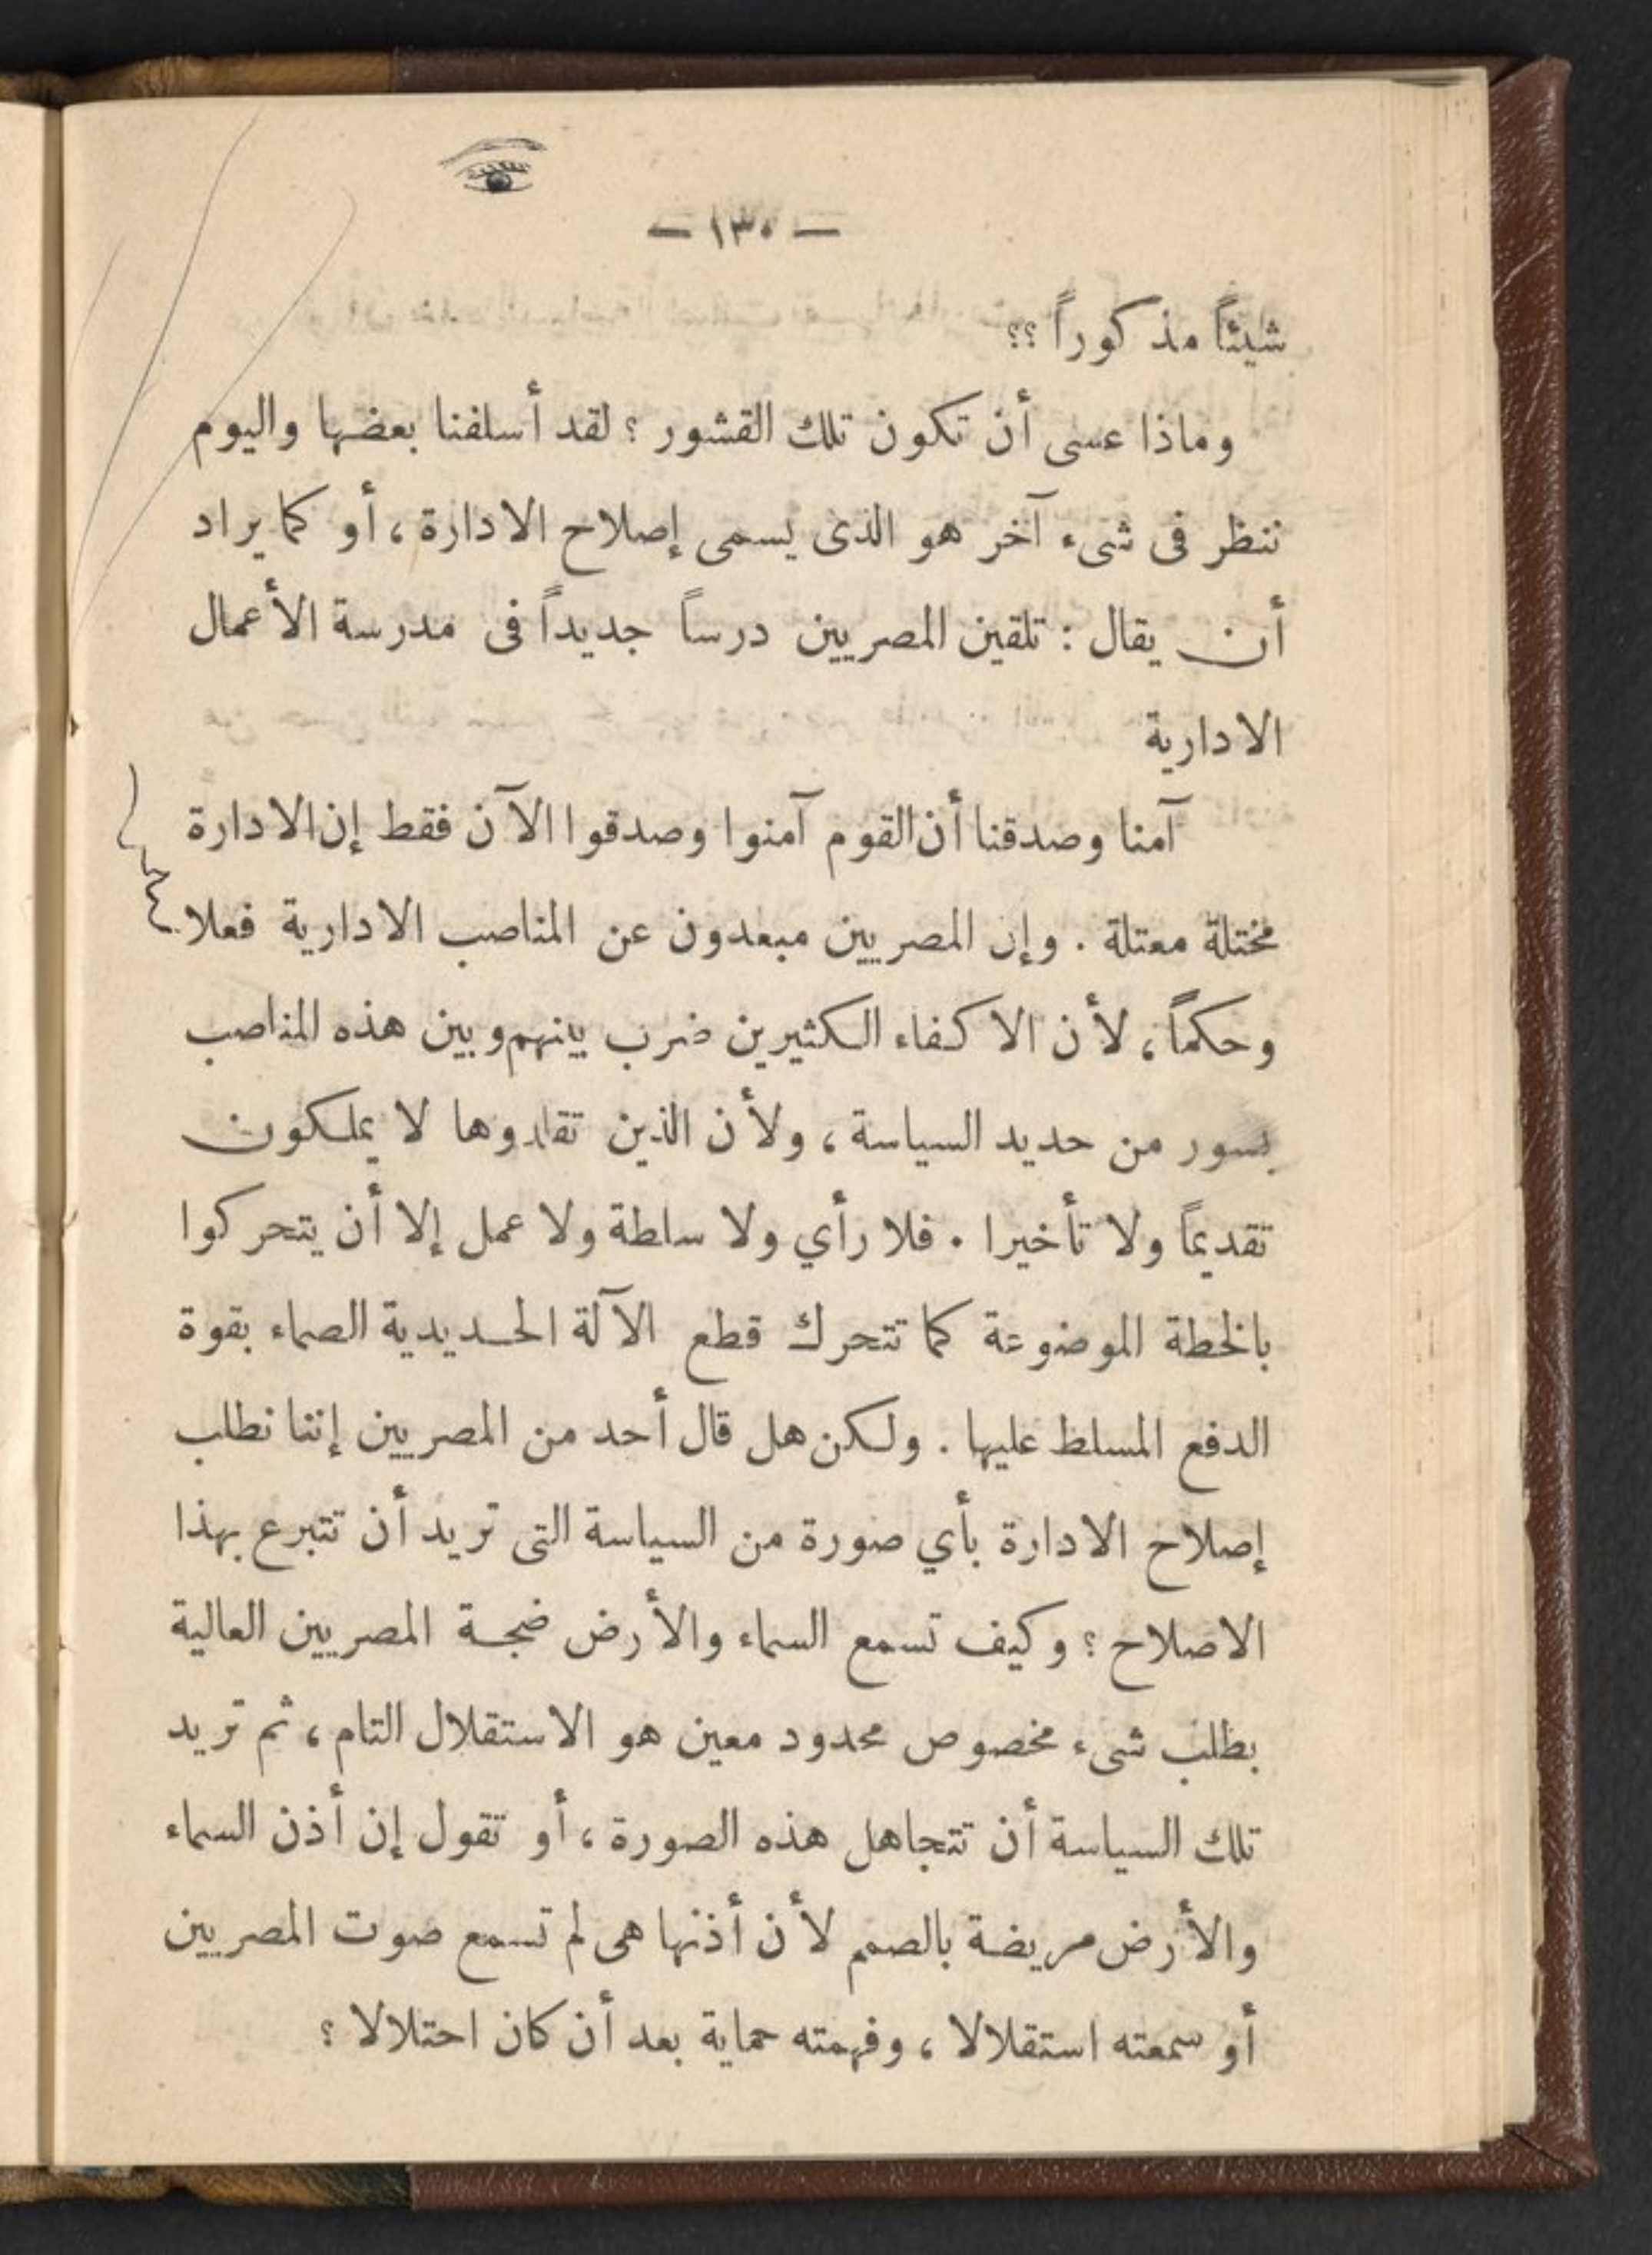 — ١٣٠ —
شيئاً مذكوراً ؟؟
وماذا عسى أن تكون تلك القشور ؟ لقد أسلفنا بعضها واليوم
ننظر فى شىء آخر هو الذى يسمى إصلاح الادارة ، أو كما يراد
أن يقال : تلقين المصريين درساً جديداً فى مدرسة الأعمال
الادارية
آمنا وصدقنا أن القوم آمنوا وصدقوا الآن فقط إن الادارة
مختلة معتلة . وإن المصريين مبعدون عن المناصب الادارية فعلا
وحكماً ، لأن الاكفاء الكثيرين ضرب بينهم وبين هذه المناصب
بسور من حديد السياسة ، ولأن الذين تقلدوها لا يملكون
تقديماً ولا تأخيرا . فلا رأي ولا سلطة ولا عمل إلا أن يتحركوا
بالخطة الموضوعة كما تتحرك قطع الآلة الحديدية الصماء بقوة
الدفع المسلط عليها . ولكن هل قال أحد من المصريين إننا نطلب
إصلاح الادارة بأي صورة من السياسة التى تريد أن تتبرع بهذا
الاصلاح ؟ وكيف تسمع السماء والأرض ضجة المصريين العالية
بطلب شىء مخصوص محدود معين هو الاستقلال التام ، ثم تريد
تلك السياسة أن تتجاهل هذه الصورة ، أو تقول إن أذن السماء
والأرض مريضة بالصمم لأن أذنها هى لم تسمع صوت المصريين
أو سمعته استقلالا ، وفهمته حماية بعد أن كان احتلالا ؟